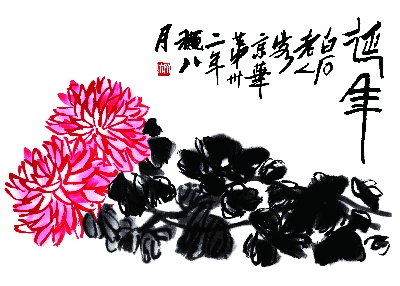 延年
白石
老人
客
京華
第卅
二年
八
月